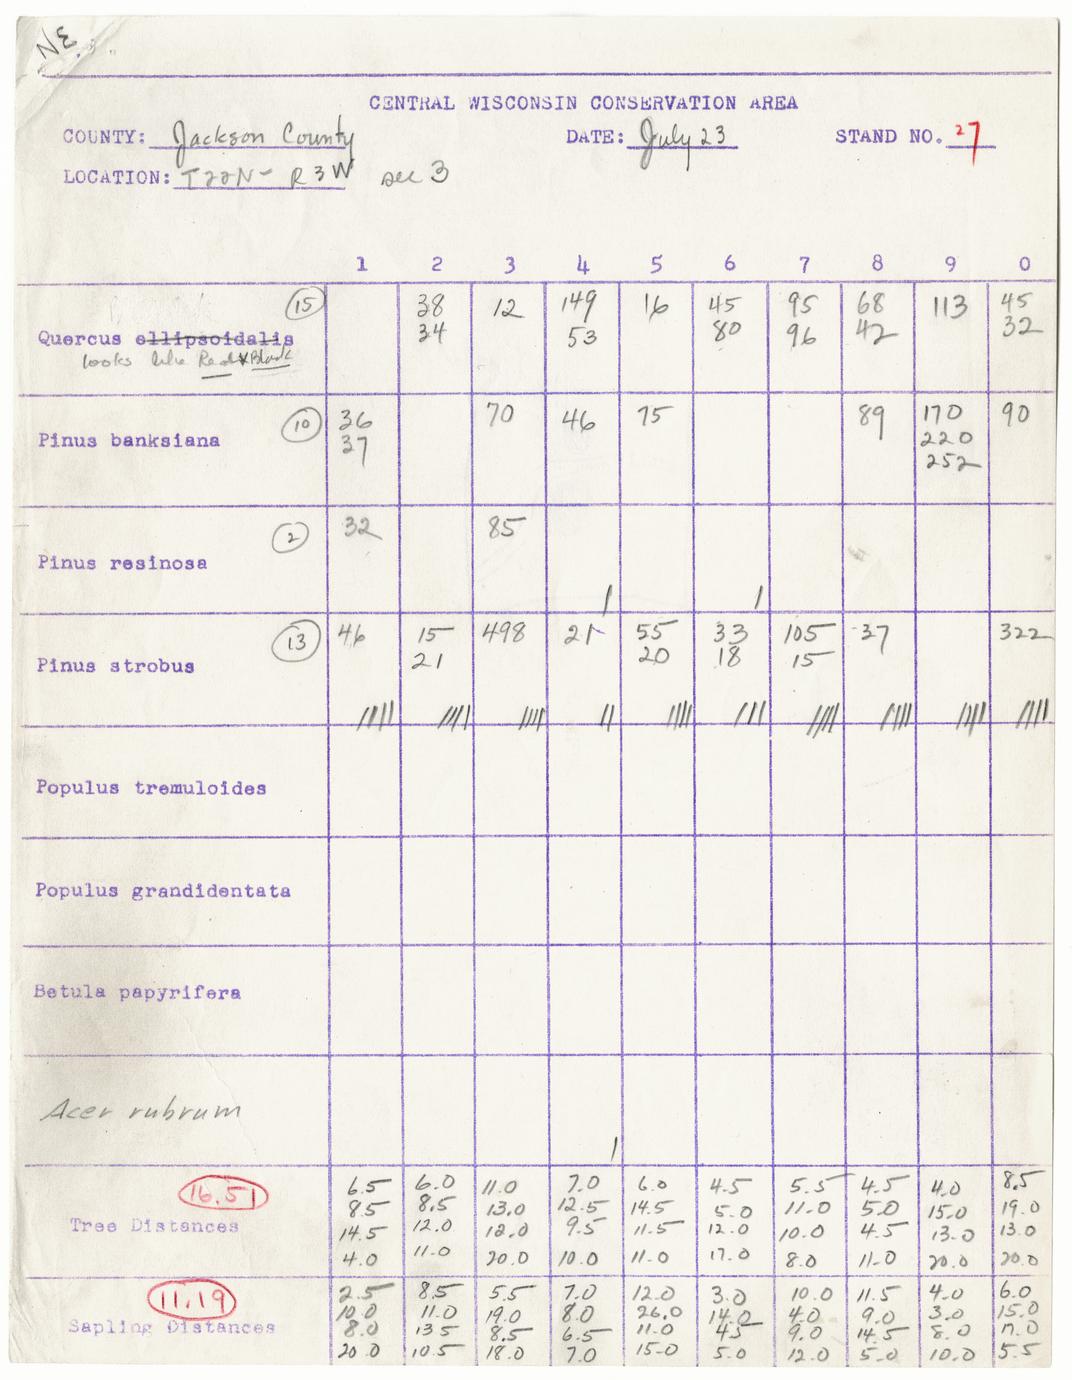 NE.
CENTRAL WISCONSIN CONSERVATION AREA
COUNTY: Jackson County DATE: July 23 STAND NO. 27
LOCATION: T22N- R3W sec 3
1 2 3 4 5 6 7 8 9 0
15 38 12 149 16 45 95 68 113 45
Quercus ellipsoidalis 34 53 80 96 42 32
looks like Red x Black
10 36 70 46 75 89 170 90
Pinus banksiana 37 220
252
2 32 85
Pinus resinosa
| |
13 46 15 498 21 55 33 105 37 322
Pinus strobus 21 20 18 15
Populus tremuloides
Populus grandidentata
Betula papyrifera
Acer rubrum
|
16.51 6.5 6.0 11.0 7.0 6.0 4.5 5.5 4.5 4.0 8.5
8.5 8.5 13.0 12.5 14.5 5.0 11.0 5.0 15.0 19.0
Tree Distances 14.5 12.0 12.0 9.5 11.5 12.0 10.0 4.5 13.0 13.0
4.0 11.0 20.0 10.0 11.0 17.0 8.0 11.0 20.0 20.0
11.19 2.5 8.5 5.5 7.0 12.0 3.0 10.0 11.5 4.0 6.0
10.0 11.0 19.0 8.0 26.0 14.0 4.0 9.0 3.0 15.0
Sapling Distances 8.0 13 5 8.5 6.5 11.0 45 9.0 14.5 8.0
20.0 10.5 18.0 7.0 15.0 5.0 12.0 5.0 10.0 5.5